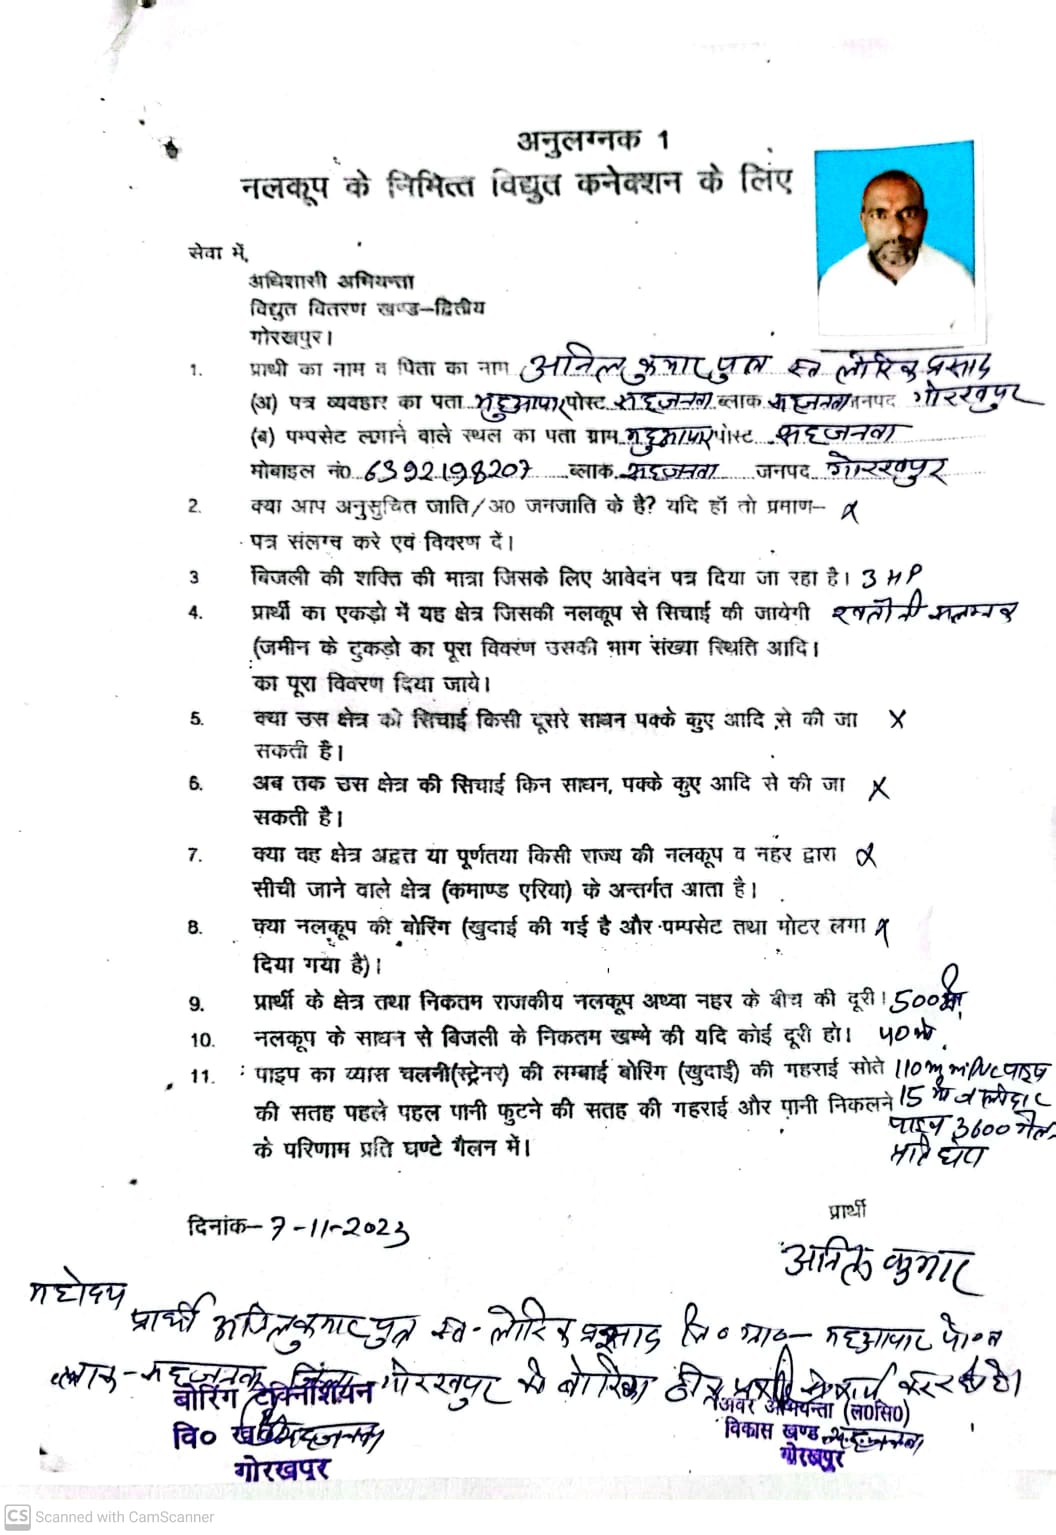 अनुलग्नक 1
नलकूप के निमित्त विद्युत कनेक्शन के लिए
सेवा में,
अधिशासी अभियन्ता
विद्युत वितरण खण्ड–द्वितीय
गोरखपुर।
1. प्रार्थी का नाम व पिता का नाम अनिल कुमार पुत्र स्व लौरिक प्रसाद
(अ) पत्र व्यवहार का पता महुआपार पोस्ट सहजनवा ब्लाक सहजनवा जनपद गोरखपुर
(ब) पम्पसेट लगाने वाले स्थल का पता ग्राम महुआपार पोस्ट सहजनवा
मोबाइल नं0 6392198207 ब्लाक सहजनवा जनपद गोरखपुर
2. क्या आप अनुसुचित जाति/अ0 जनजाति के है? यदि हॉ तो प्रमाण–
पत्र संलग्न करे एवं विवरण दें।
3 बिजली की शक्ति की मात्रा जिसके लिए आवेदन पत्र दिया जा रहा है। 3 HP
4. प्रार्थी का एकड़ो में यह क्षेत्र जिसकी नलकूप से सिचाई की जायेगी खतौनी संलग्नक
(जमीन के टुकड़ो का पूरा विवरंण उसकी भाग संख्या स्थिति आदि।
का पूरा विवरण दिया जाये।
5. क्या उस क्षेत्र को सिचाई किसी दूसरे साधन पक्के कुए आदि से की जा X
सकती है।
6. अब तक उस क्षेत्र की सिचाई किन साधन, पक्के कुए आदि से की जा X
सकती है।
7. क्या वह क्षेत्र अद्वत या पूर्णतया किसी राज्य की नलकूप व नहर द्वारा
सीची जाने वाले क्षेत्र (कमाण्ड एरिया) के अन्तर्गत आता है।
8. क्या नलकूप की बोरिंग (खुदाई की गई है और पम्पसेट तथा मोटर लगा
दिया गया है)।
9. प्रार्थी के क्षेत्र तथा निकतम राजकीय नलकूप अथ्वा नहर के बीच की दूरी। 500 मी.
10. नलकूप के साधन से बिजली के निकतम खम्भे की यदि कोई दूरी हो। 40 मी.
11. पाइप का व्यास चलनी(स्ट्रेनर) की लम्बाई बोरिंग (खुदाई) की गहराई सोते 110 mm PVC पाइप
की सतह पहले पहल पानी फुटने की सतह की गहराई और पानी निकलने 15 मी
पाइप 3600 गैलन
के परिणाम प्रति घण्टे गैलन में। प्रति घंटा
प्रार्थी
दिनांक– 7-11-2023
अनिल कुमार
महोदय
प्रार्थी अनिल कुमार पुत्र स्व- लौरिक प्रसाद ग्रा०- महुआपार पो०
ब्लाक- सहजनवा जिला गोरखपुर
बोरिंग टेक्निशियन
वि० ख० सहजनवा
गोरखपुर
अवर अभियन्ता (ल०सि०)
विकास खण्ड सहजनवा
गोरखपुर
CS Scanned with CamScanner